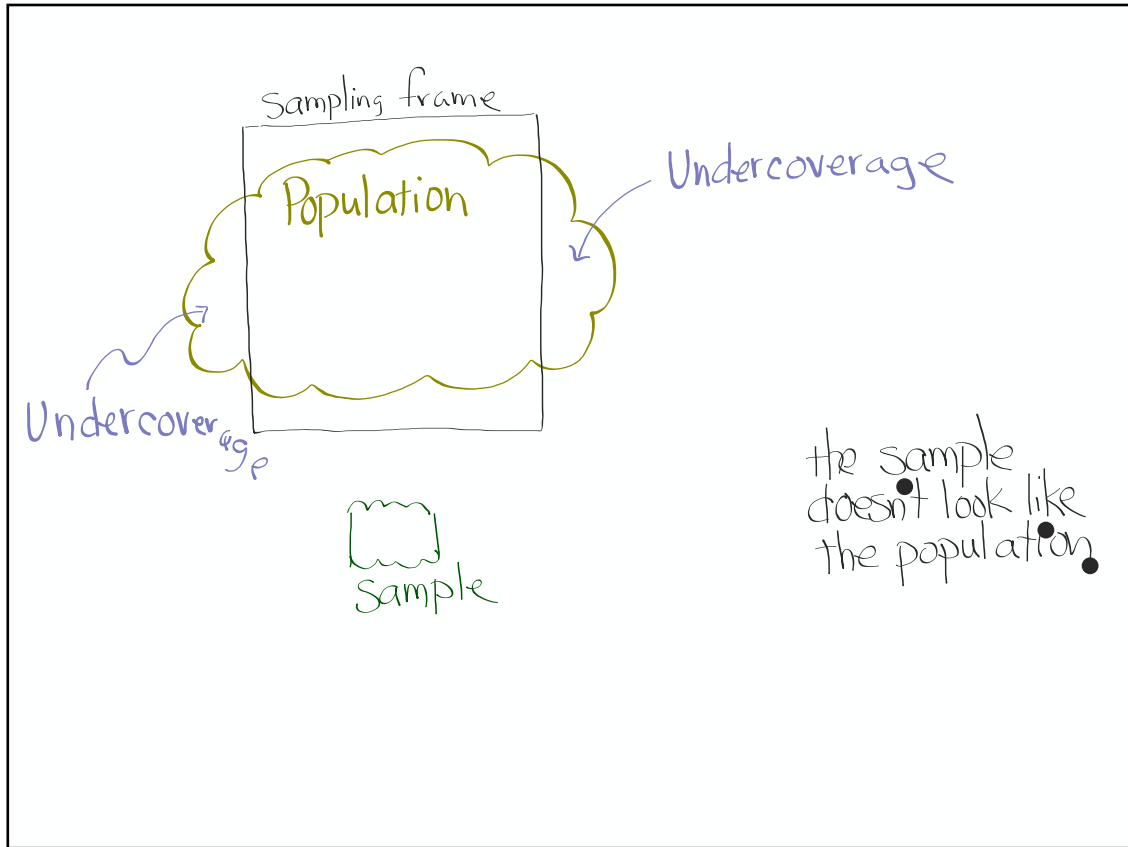 Sampling frame
Population
Undercoverage
Undercoverage
the sample
doesn't look like
the population.
Sample